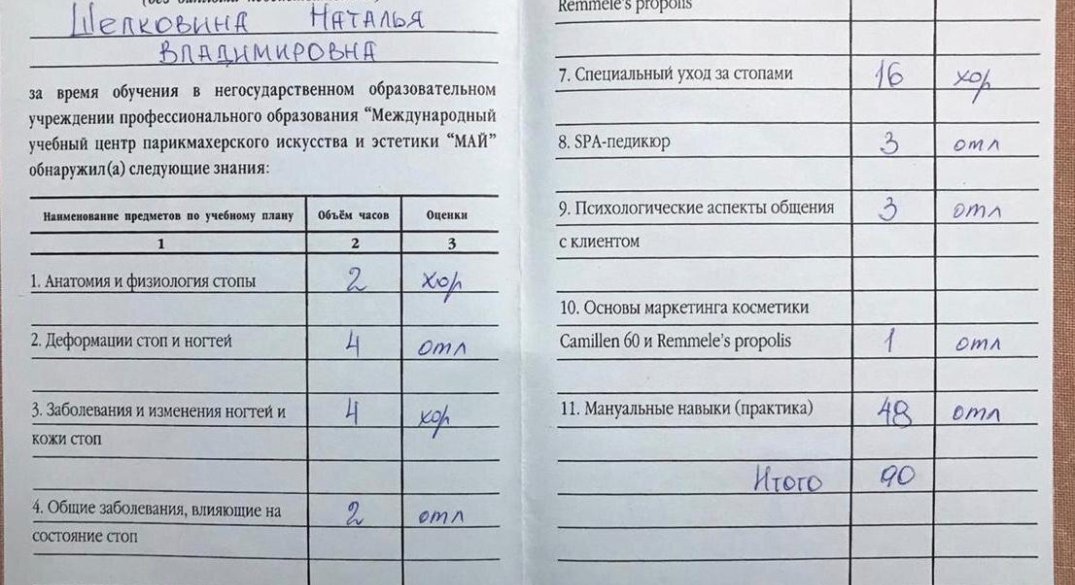 Шелковина Наталья
Владимировна
за время обучения в негосударственном образовательном
учреждении профессионального образования “Международный
учебный центр парикмахерского искусства и эстетики “МАЙ”
обнаружил(а) следующие знания:
Наименование предметов по учебному плану Объём часов Оценки
1 2 3
1. Анатомия и физиология стопы 2 хор
2. Деформации стоп и ногтей 4 отл
3. Заболевания и изменения ногтей и 4 хор
кожи стоп
4. Общие заболевания, влияющие на 2 отл
состояние стоп
Remmele's propolis
7. Специальный уход за стопами 16 хор
8. SPA-педикюр 3 отл
9. Психологические аспекты общения 3 отл
с клиентом
10. Основы маркетинга косметики
Camillen 60 и Remmele's propolis 1 отл
11. Мануальные навыки (практика) 48 отл
Итого 90